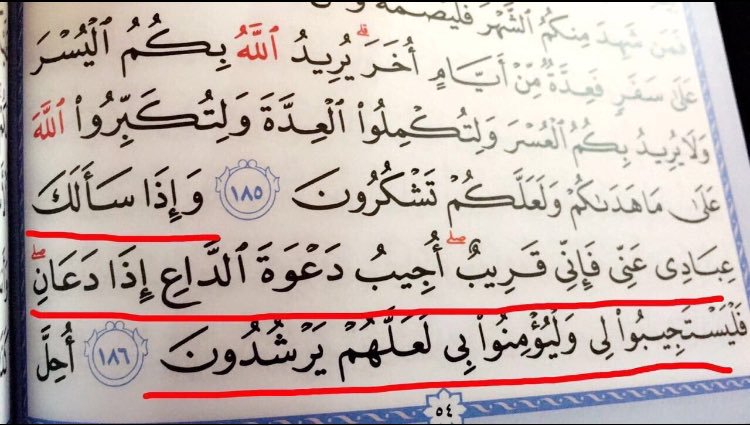 فَمَن شَهِدَ مِنكُمُ الشَّهْرَ فَلْيَصُمْهُ وَمَن
عَلَىٰ سَفَرٍ فَعِدَّةٌ مِّنْ أَيَّامٍ أُخَرَ ۗ يُرِيدُ اللَّهُ بِكُمُ الْيُسْرَ
وَلَا يُرِيدُ بِكُمُ الْعُسْرَ وَلِتُكْمِلُوا الْعِدَّةَ وَلِتُكَبِّرُوا اللَّهَ
عَلَىٰ مَا هَدَىٰكُمْ وَلَعَلَّكُمْ تَشْكُرُونَ ١٨٥ وَإِذَا سَأَلَكَ
عِبَادِى عَنِّى فَإِنِّى قَرِيبٌ ۖ أُجِيبُ دَعْوَةَ الدَّاعِ إِذَا دَعَانِ ۖ
فَلْيَسْتَجِيبُوا لِى وَلْيُؤْمِنُوا بِى لَعَلَّهُمْ يَرْشُدُونَ ١٨٦ أُحِلَّ
٥٤